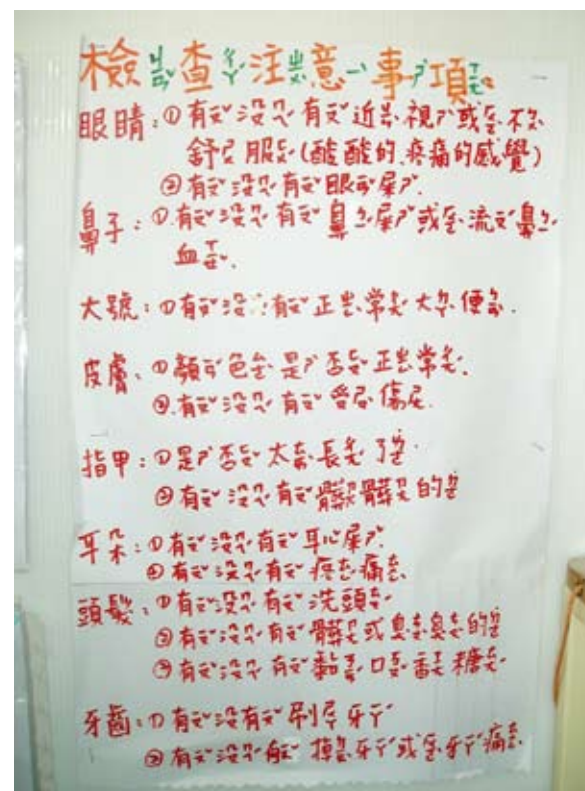 檢查注意事項
眼睛:①有沒有近視或不
舒服(酸酸的、疼痛的感覺)
②有沒有眼屎.
鼻子:①.有沒有鼻屎或流鼻
血.
大號:①有沒有正常大便.
皮膚:①顏色是否正常.
②.有沒有受傷.
指甲:①是否太長了
②有沒有髒髒的
耳朵:①有沒有耳屎.
②有沒有疼痛.
頭髮:①有沒有洗頭
②有沒有髒或臭臭的
③有沒有黏口香糖
牙齒:①有沒有刷牙
②有沒有牙或牙痛